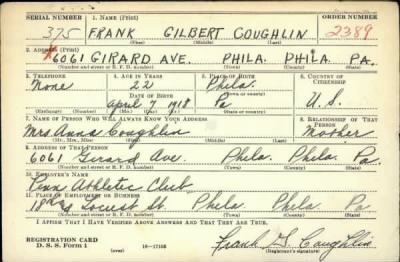 SERIAL NUMBER 1. NAME (Print) ORDER NUMBER
375 FRANK GILBERT COUGHLIN 2389
(First) (Middle) (Last)
2. ADDRESS (Print)
6061 GIRARD AVE. PHILA. PHILA. PA.
(Number and street or R. F. D. number) (Town) (County) (State)
3. TELEPHONE 4. AGE IN YEARS 5. PLACE OF BIRTH 6. COUNTRY OF CITIZENSHIP
None 22 Phila.
DATE OF BIRTH (Town or county)
April 7 1918 Pa U.S.
(Exchange) (Number) (Mo.) (Day) (Yr.) (State or country)
7. NAME OF PERSON WHO WILL ALWAYS KNOW YOUR ADDRESS 8. RELATIONSHIP OF THAT PERSON
Mrs. Anna Coughlin Mother
(Mr., Mrs., Miss) (First) (Middle) (Last)
9. ADDRESS OF THAT PERSON
6061 Girard Ave. Phila. Phila. Pa.
(Number and street or R. F. D. number) (Town) (County) (State)
10. EMPLOYER'S NAME
Penn Athletic Club
11. PLACE OF EMPLOYMENT OR BUSINESS
18th & Locust St. Phila. Phila. Pa.
(Number and street or R. F. D. number) (Town) (County) (State)
I AFFIRM THAT I HAVE VERIFIED ABOVE ANSWERS AND THAT THEY ARE TRUE.
REGISTRATION CARD
D. S. S. Form 1 (over) 16—17105 Frank G. Coughlin
(Registrant's signature)